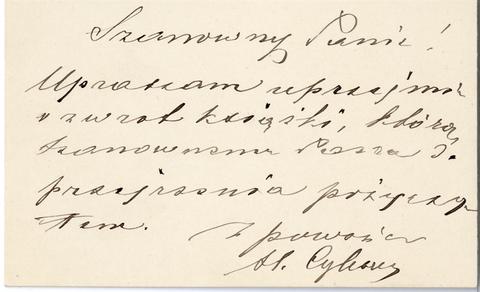 Szanowny Panie!
Upraszam uprzejmie
o zwrot książki, którą
szanownemu Panu d.
przejrzenia pożyczy-
łem.
Z poważa
St.